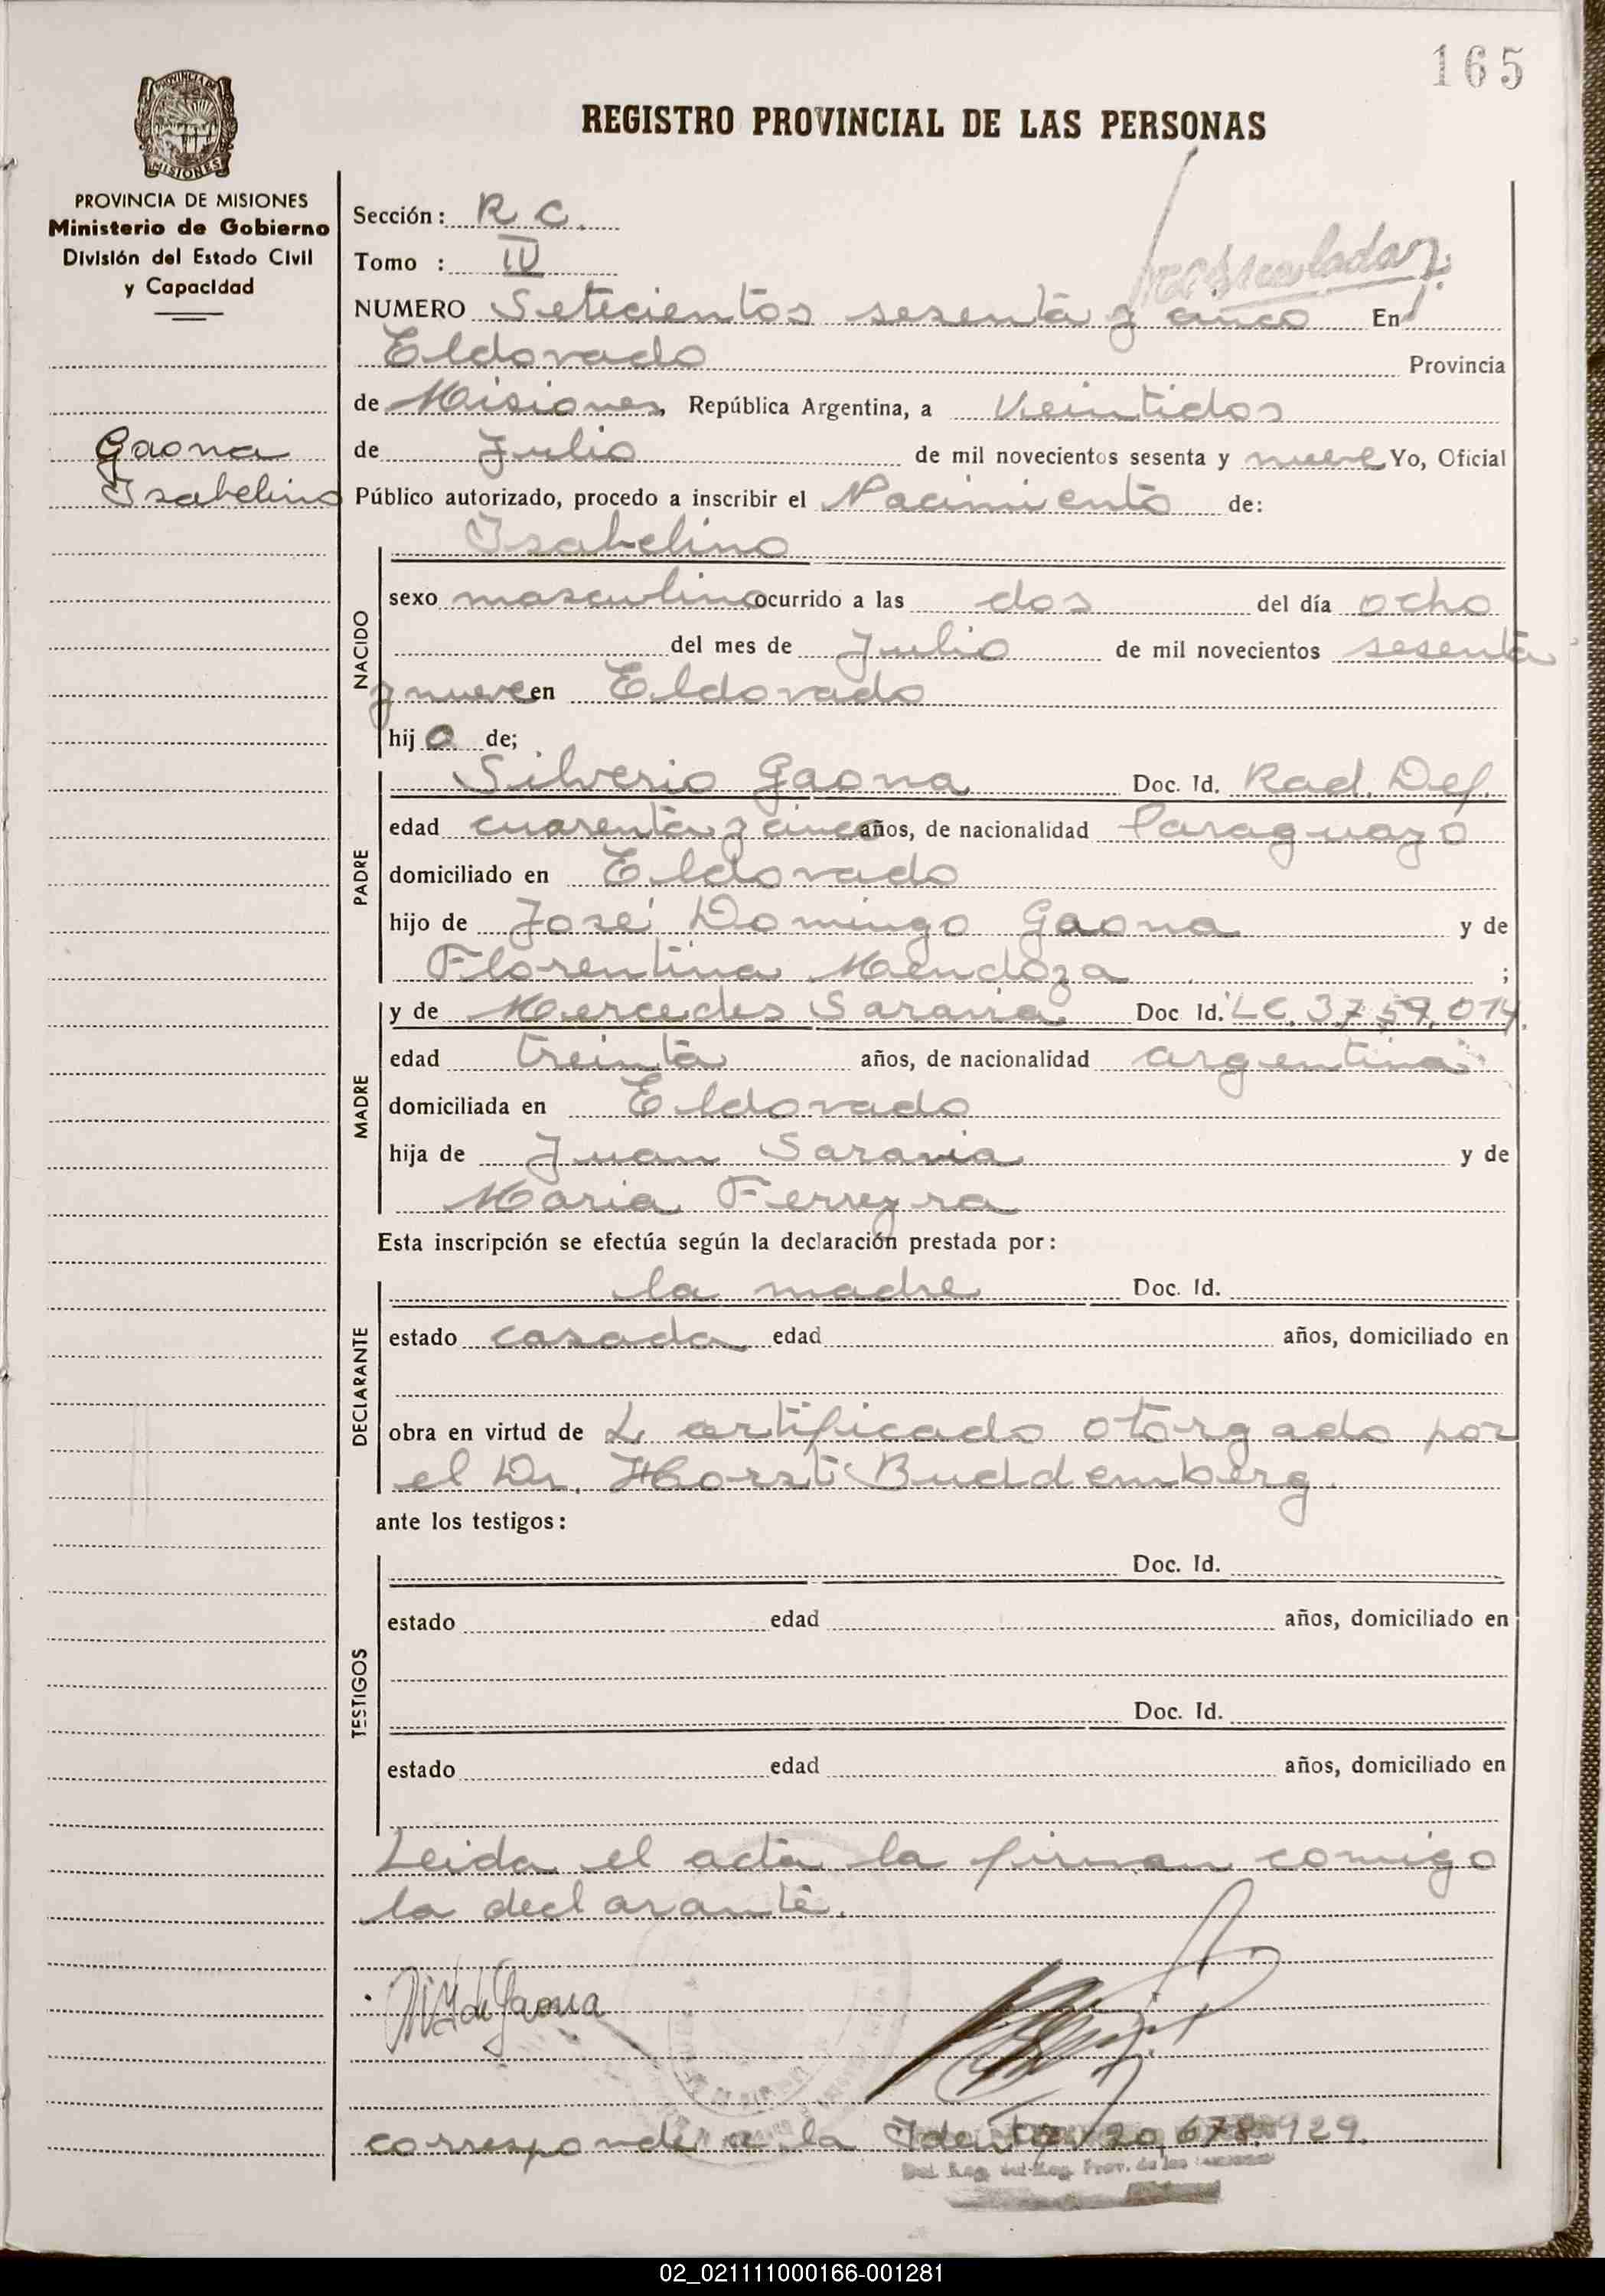 165
PROVINCIA DE MISIONES
Ministerio de Gobierno
División del Estado Civil
y Capacidad
REGISTRO PROVINCIAL DE LAS PERSONAS
Sección: R C.
Tomo : IV
NUMERO Setecientos sesenta y cinco En
Eldorado Provincia
de Misiones, República Argentina, a Veintidos
Gaona
Isabelino
de Julio de mil novecientos sesenta y nueve Yo, Oficial
Público autorizado, procedo a inscribir el Nacimiento de:
NACIDO
Isabelino
sexo masculino ocurrido a las dos del día ocho
del mes de Julio de mil novecientos sesenta
y nueve en Eldorado
hij o de;
PADRE
Silverio Gaona Doc. Id. Rad. Def.
edad cuarenta y cinco años, de nacionalidad Paraguayo
domiciliado en Eldorado
hijo de José Domingo Gaona y de
Florentina Mendoza ;
MADRE
y de Mercedes Saravia Doc Id. LC. 3.759.014.
edad treinta años, de nacionalidad argentina
domiciliada en Eldorado
hija de Juan Saravia y de
Maria Ferreyra
Esta inscripción se efectúa según la declaración prestada por:
DECLARANTE
la madre Doc. Id.
estado casada edad años, domiciliado en
obra en virtud de L certificado otorgado por
el Dr. Horst Buddemberg.
ante los testigos:
TESTIGOS
Doc. Id.
estado edad años, domiciliado en
Doc. Id.
estado edad años, domiciliado en
Leida el acta la firman comigo
la declarante.
de Gaona
corresponde a la Ident. 20,678.929.
02_021111000166-001281